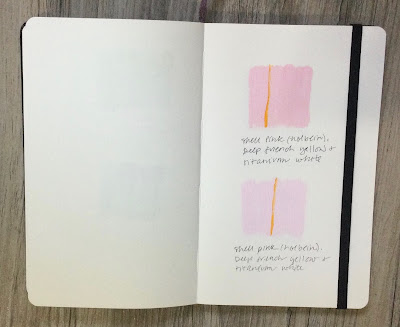 shell pink (holbein).
Deep french yellow +
titanium white
shell pink (holbein).
Deep french yellow +
titanium white